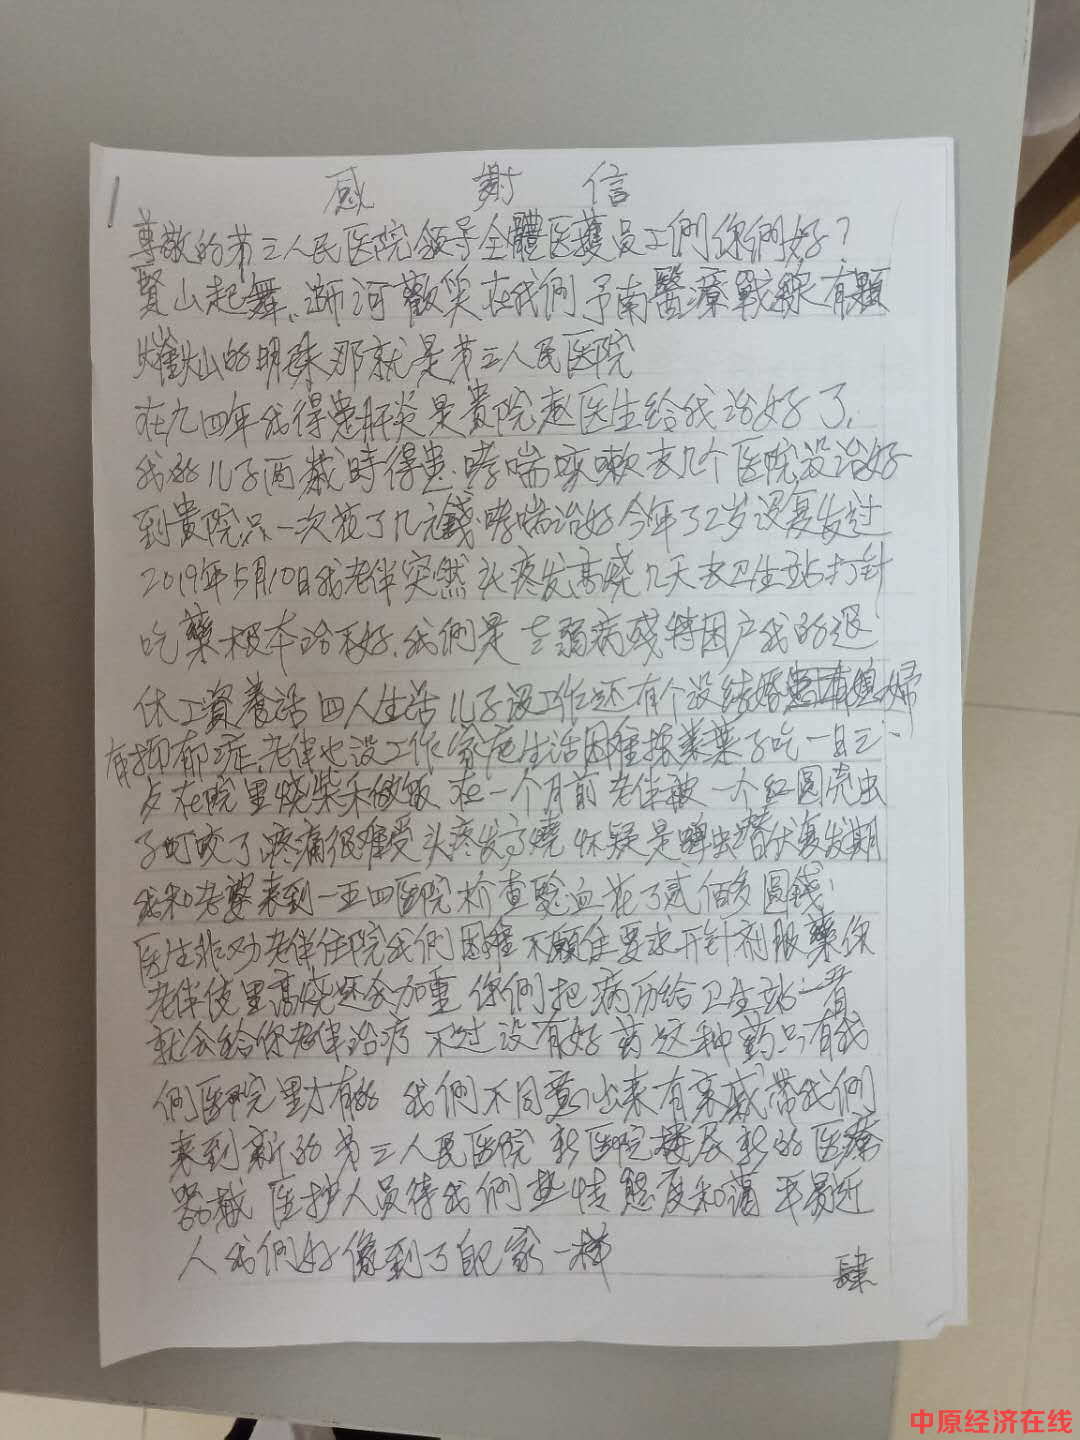 感謝信
尊敬的第三人民医院领导全體医護员工們你們好?
賢山起舞、浉河歡笑在我們予南醫療戰線有顆
山的明珠那就是第三人民医院
在九四年我得患肝炎是貴院赵医生给我治好了.
我的儿子两歲時得患.哮喘咳嗽去几个医院没治好
到貴院只一次花了几元錢.哮喘治好今年了2岁没复发过
2019年5月10日我老伴突然头疼发高燒几天去卫生站打针
吃藥根本治不好.我們是老弱病残特困户我的退
休工資養活四人生活儿子没工作还有个没结婚媳妇
有抑郁症.老伴也没工作家庭生活困難揀菜葉子吃一日三
在院里烧柴禾做饭在一个月前老伴被一个红圆壳虫
子叮咬了疼痛很难受头疼发高燒怀疑是蜱虫潜伏复发期
我和老婆来到一五四医院检查驗血花了贰佰多圆錢
医生非劝老伴住院我們困难不願住要求开针剂服藥你
老伴使里高烧还会加重你們把病历给卫生站一看
就会给你老伴治疗不过没有好药这种药只有我
們医院里才有的我們不同意出来有亲戚带我們
来到新的第三人民医院新医院楼层新的医療
器械医护人员待我們热情態度和蔼平易近
人我們好像到了自己家一样
肆
中原经济在线